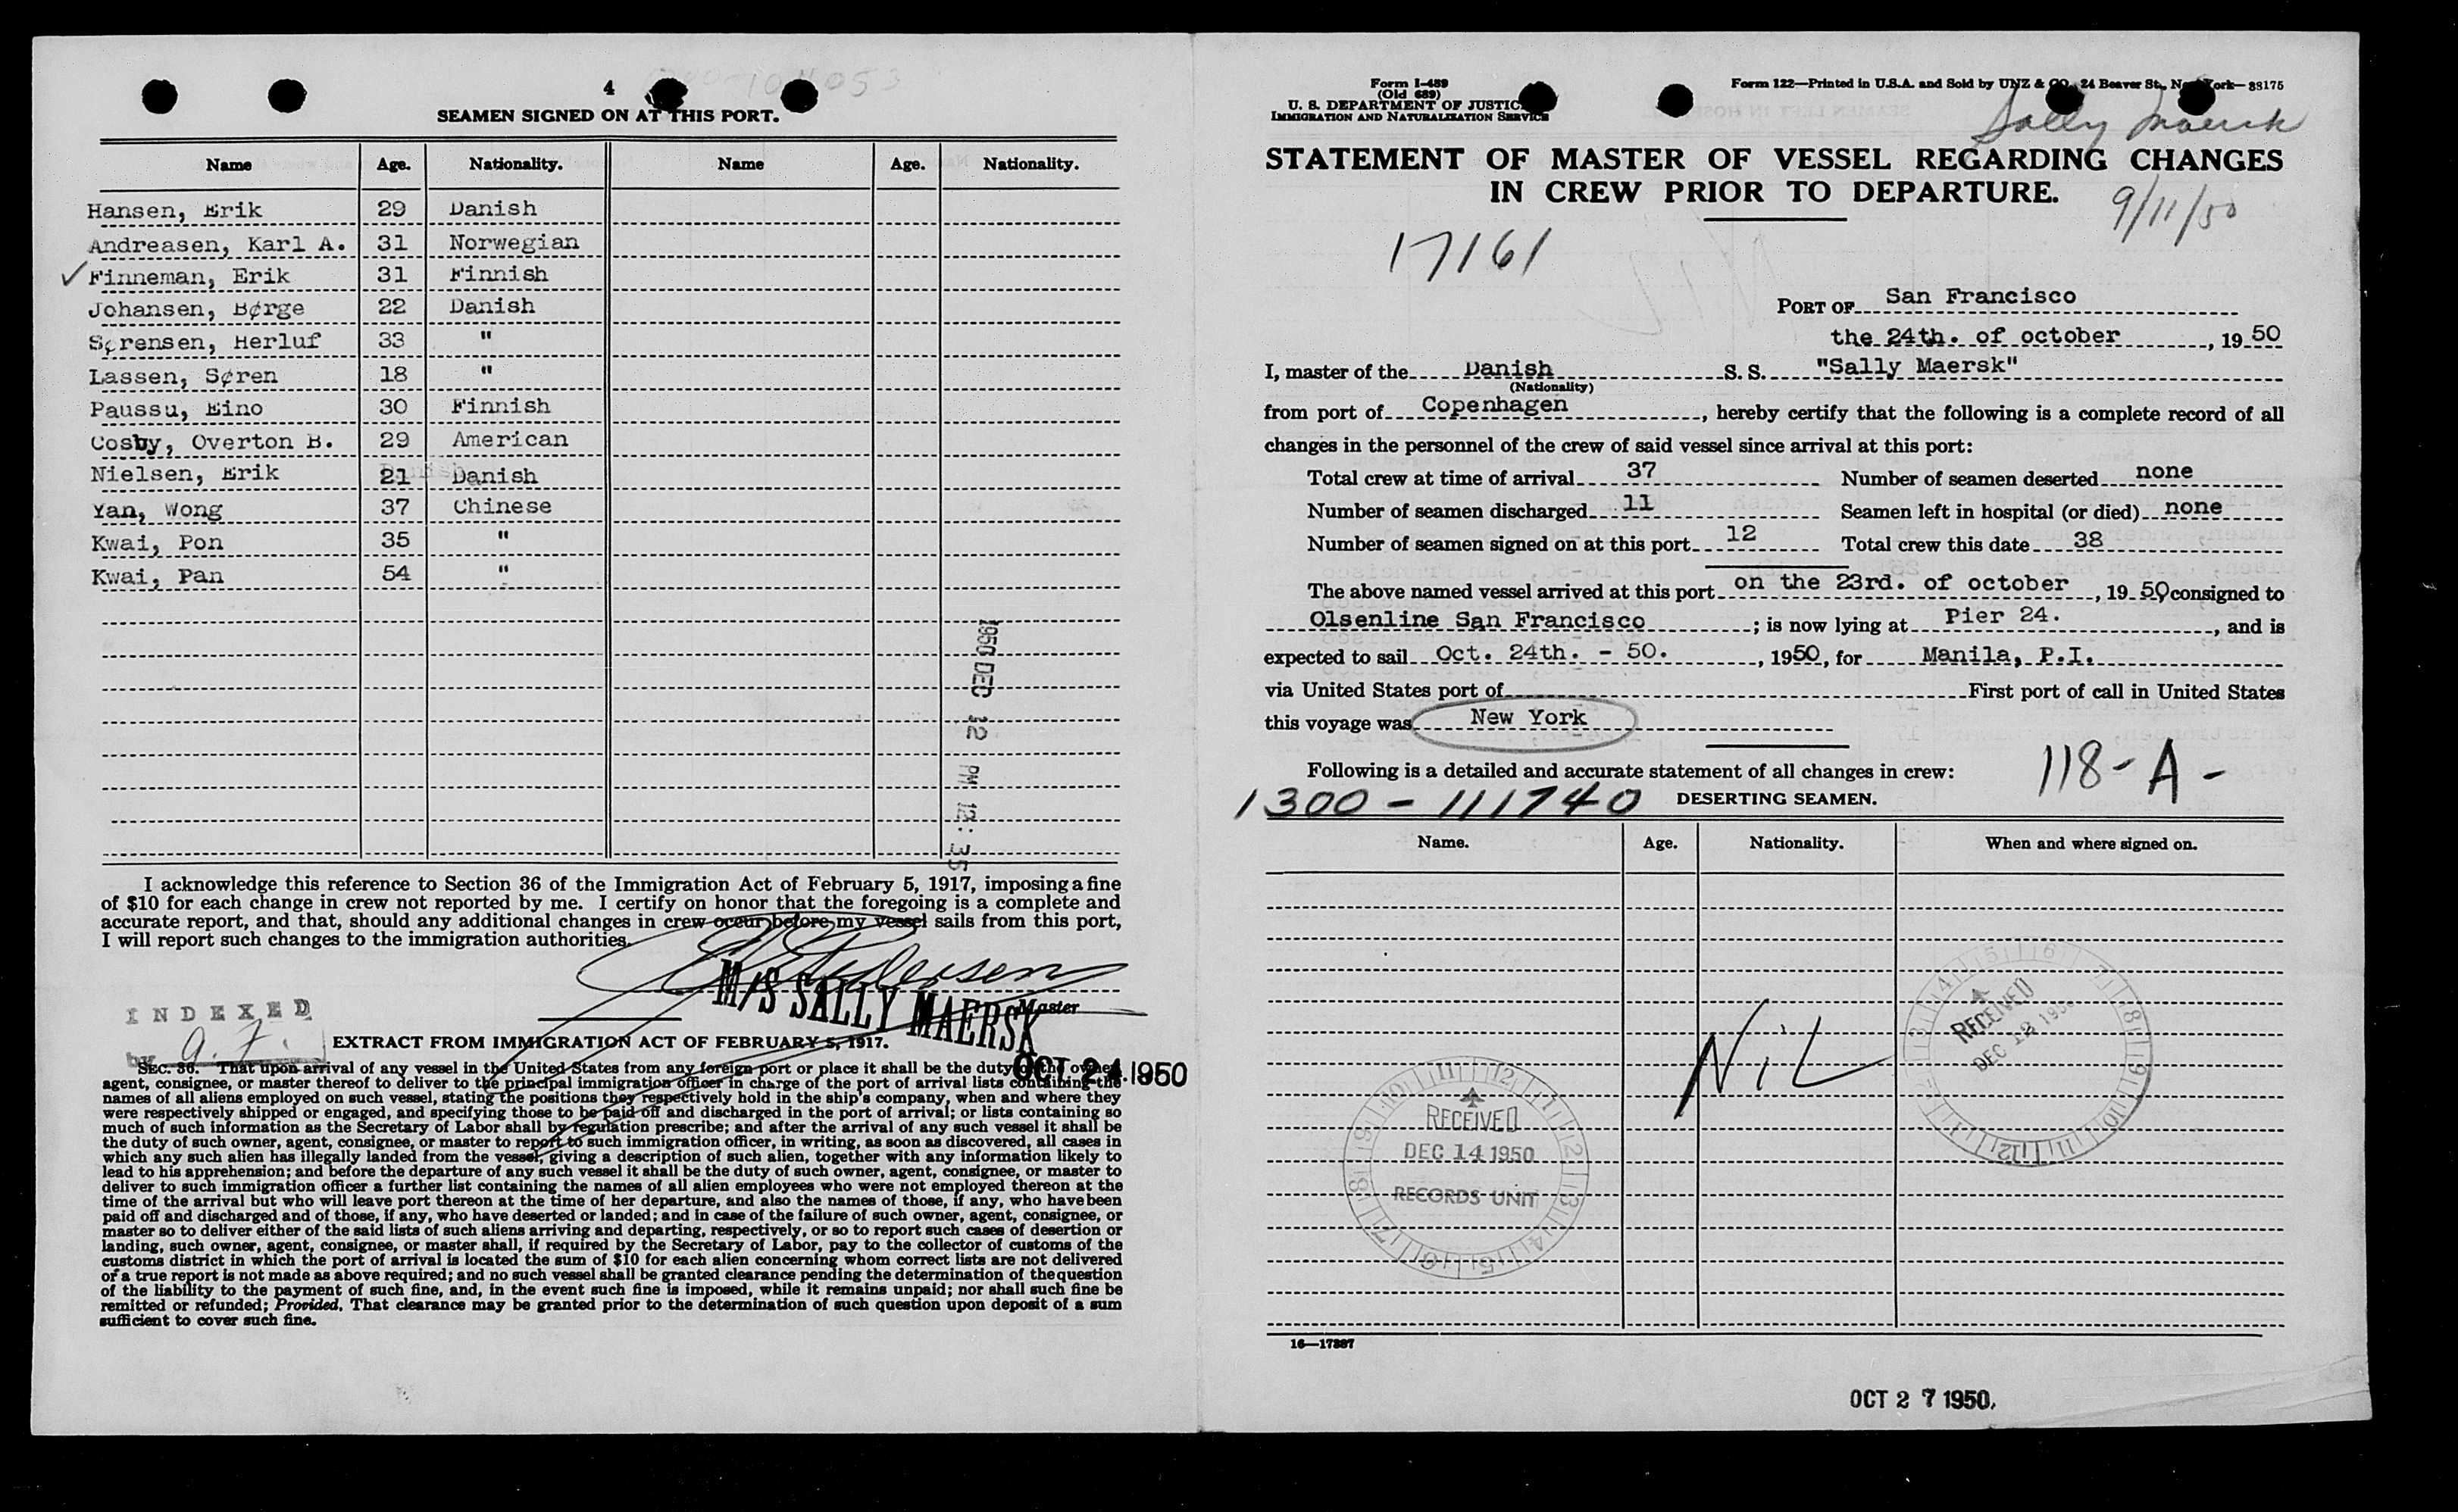 4
SEAMEN SIGNED ON AT THIS PORT.
Name Age. Nationality. Name Age. Nationality.
Hansen, Erik 29 Danish
Andreasen, Karl A. 31 Norwegian
✓ Finneman, Erik 31 Finnish
Johansen, Børge 22 Danish
Sørensen, Herluf 33 "
Lassen, Søren 18 "
Paussu, Eino 30 Finnish
Cosby, Overton B. 29 American
Nielsen, Erik 21 Danish
Yan, Wong 37 Chinese
Kwai, Pon 35 "
Kwai, Pan 54 "
1950 DEC 12 PM 12:35
I acknowledge this reference to Section 36 of the Immigration Act of February 5, 1917, imposing a fine
of $10 for each change in crew not reported by me. I certify on honor that the foregoing is a complete and
accurate report, and that, should any additional changes in crew occur before my vessel sails from this port,
I will report such changes to the immigration authorities.
Pedersen
M/S SALLY MAERSK
Master
INDEXED
by
EXTRACT FROM IMMIGRATION ACT OF FEBRUARY 5, 1917.
OCT 24 1950
SEC. 36. That upon arrival of any vessel in the United States from any foreign port or place it shall be the duty of the owner,
agent, consignee, or master thereof to deliver to the principal immigration officer in charge of the port of arrival lists containing the
names of all aliens employed on such vessel, stating the positions they respectively hold in the ship's company, when and where they
were respectively shipped or engaged, and specifying those to be paid off and discharged in the port of arrival; or lists containing so
much of such information as the Secretary of Labor shall by regulation prescribe; and after the arrival of any such vessel it shall be
the duty of such owner, agent, consignee, or master to report to such immigration officer, in writing, as soon as discovered, all cases in
which any such alien has illegally landed from the vessel, giving a description of such alien, together with any information likely to
lead to his apprehension; and before the departure of any such vessel it shall be the duty of such owner, agent, consignee, or master to
deliver to such immigration officer a further list containing the names of all alien employees who were not employed thereon at the
time of the arrival but who will leave port thereon at the time of her departure, and also the names of those, if any, who have been
paid off and discharged and of those, if any, who have deserted or landed; and in case of the failure of such owner, agent, consignee, or
master so to deliver either of the said lists of such aliens arriving and departing, respectively, or so to report such cases of desertion or
landing, such owner, agent, consignee, or master shall, if required by the Secretary of Labor, pay to the collector of customs of the
customs district in which the port of arrival is located the sum of $10 for each alien concerning whom correct lists are not delivered
or a true report is not made as above required; and no such vessel shall be granted clearance pending the determination of the question
of the liability to the payment of such fine, and, in the event such fine is imposed, while it remains unpaid; nor shall such fine be
remitted or refunded; Provided, That clearance may be granted prior to the determination of such question upon deposit of a sum
sufficient to cover such fine.
Form I-489
(Old 689)
U. S. DEPARTMENT OF JUSTICE
IMMIGRATION AND NATURALIZATION SERVICE
Form 122—Printed in U.S.A. and Sold by UNZ & CO., 24 Beaver St., New York—38175
Sally Maersk
STATEMENT OF MASTER OF VESSEL REGARDING CHANGES
IN CREW PRIOR TO DEPARTURE.
9/11/50
17161
PORT OF San Francisco
the 24th. of october, 1950
I, master of the Danish S. S. "Sally Maersk"
(Nationality)
from port of Copenhagen, hereby certify that the following is a complete record of all
changes in the personnel of the crew of said vessel since arrival at this port:
Total crew at time of arrival 37 Number of seamen deserted none
Number of seamen discharged 11 Seamen left in hospital (or died) none
Number of seamen signed on at this port 12 Total crew this date 38
The above named vessel arrived at this port on the 23rd. of october, 1950 consigned to
Olsenline San Francisco; is now lying at Pier 24., and is
expected to sail Oct. 24th. - 50., 1950, for Manila, P.I.
via United States port of First port of call in United States
this voyage was New York
Following is a detailed and accurate statement of all changes in crew:
118-A-
1300-111740
DESERTING SEAMEN.
Name. Age. Nationality. When and where signed on.
NiL
RECEIVED
DEC 12 1950
RECEIVED
DEC 14 1950
RECORDS UNIT
16—17397
OCT 27 1950